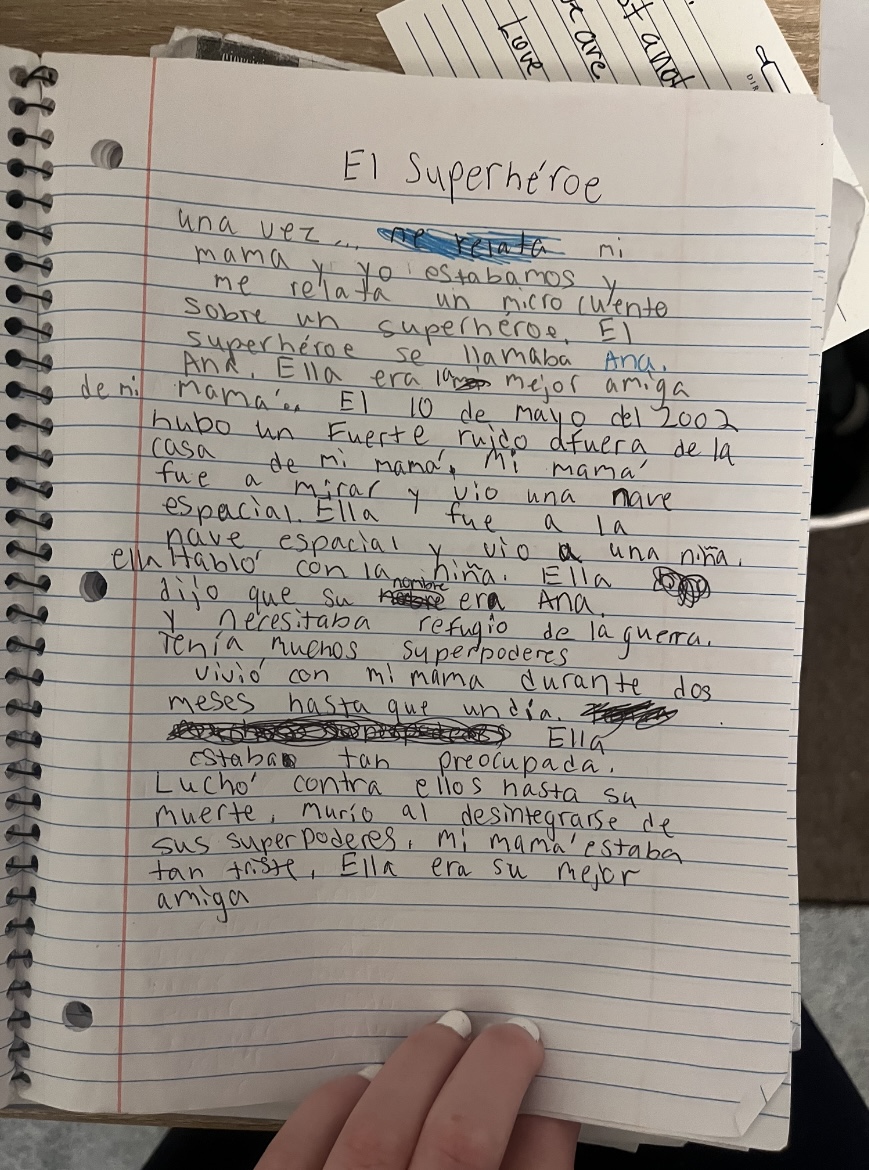 Love
e are
st a not
DIR
El Superhéroe
una vez... mi
mama y yo estabamos y
me relata un micro cuento
sobre un superhéroe. El
superhéroe se llamaba Ana.
Ana. Ella era la mejor amiga
de mi mamá.. El 10 de mayo del 2002
hubo un Fuerte ruido afuera de la
casa de mi mamá. Mi mamá
fue a mirar y vio una nave
espacial. Ella fue a la
nave espacial y vio a una niña.
ella Habló con la niña. Ella
dijo que su nombre era Ana.
y necesitaba refugio de la guerra.
Tenía muchos superpoderes
vivió con mi mama durante dos
meses hasta que un día.
Ella
estaba tan preocupada.
Luchó contra ellos hasta su
muerte, murío al desintegrarse de
sus superpoderes. mi mamá estaba
tan triste, Ella era su mejor
amiga